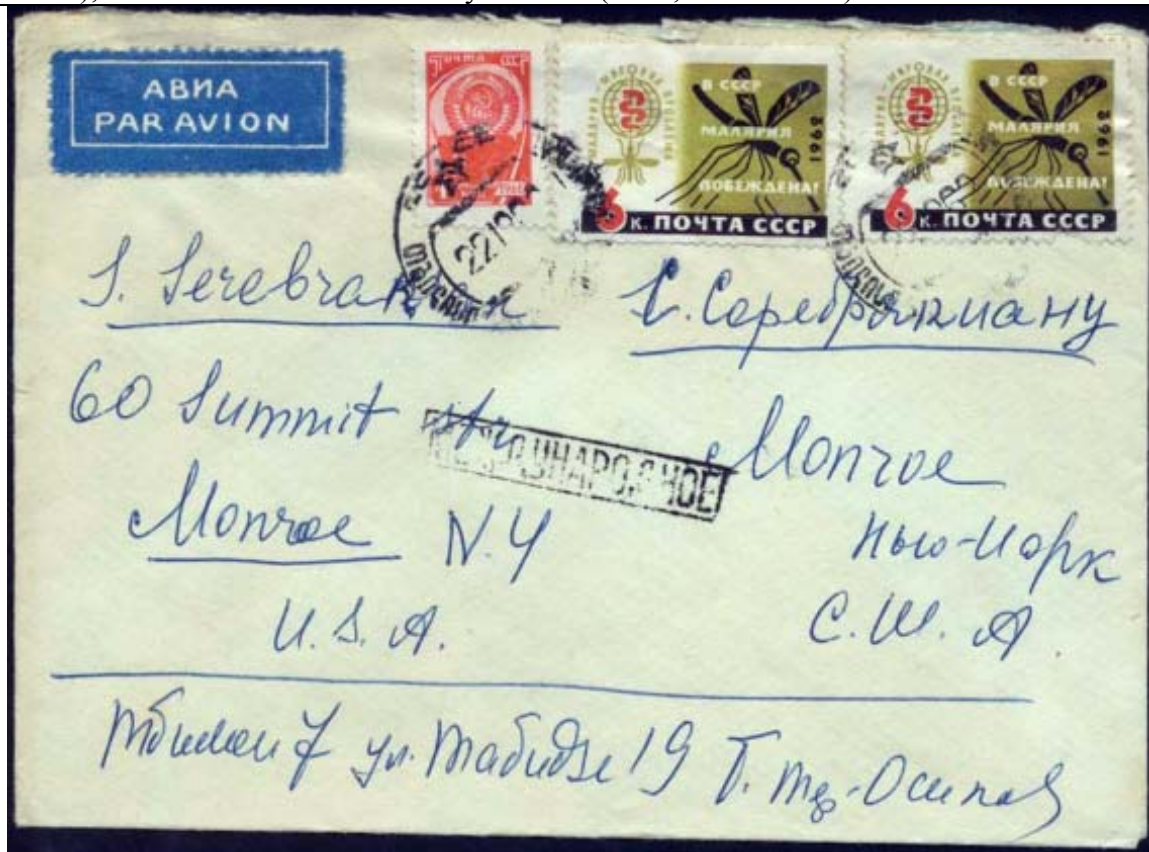 АВИА
PAR AVION
ПОЧТА СССР
МИРОВАЯ
МАЛЯРИЯ
В СССР
МАЛЯРИЯ
ПОБЕЖДЕНА!
1962
6 к. ПОЧТА СССР
МИРОВАЯ
МАЛЯРИЯ
В СССР
МАЛЯРИЯ
ПОБЕЖДЕНА!
1962
6 к. ПОЧТА СССР
S. Serebrakian
С. Серебрякиану
60 Summit str
МЕЖДУНАРОДНОЕ
Monroe
Monroe N.Y
Нью-Иорк
U.S.A.
С.Ш.А.
Тбилиси 7 ул. Табидзе 19 Т. Тер-Осипов